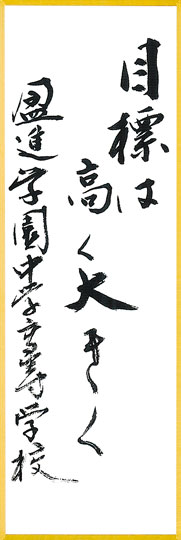 目標は
高く大きく
盈進学園中学高等学校